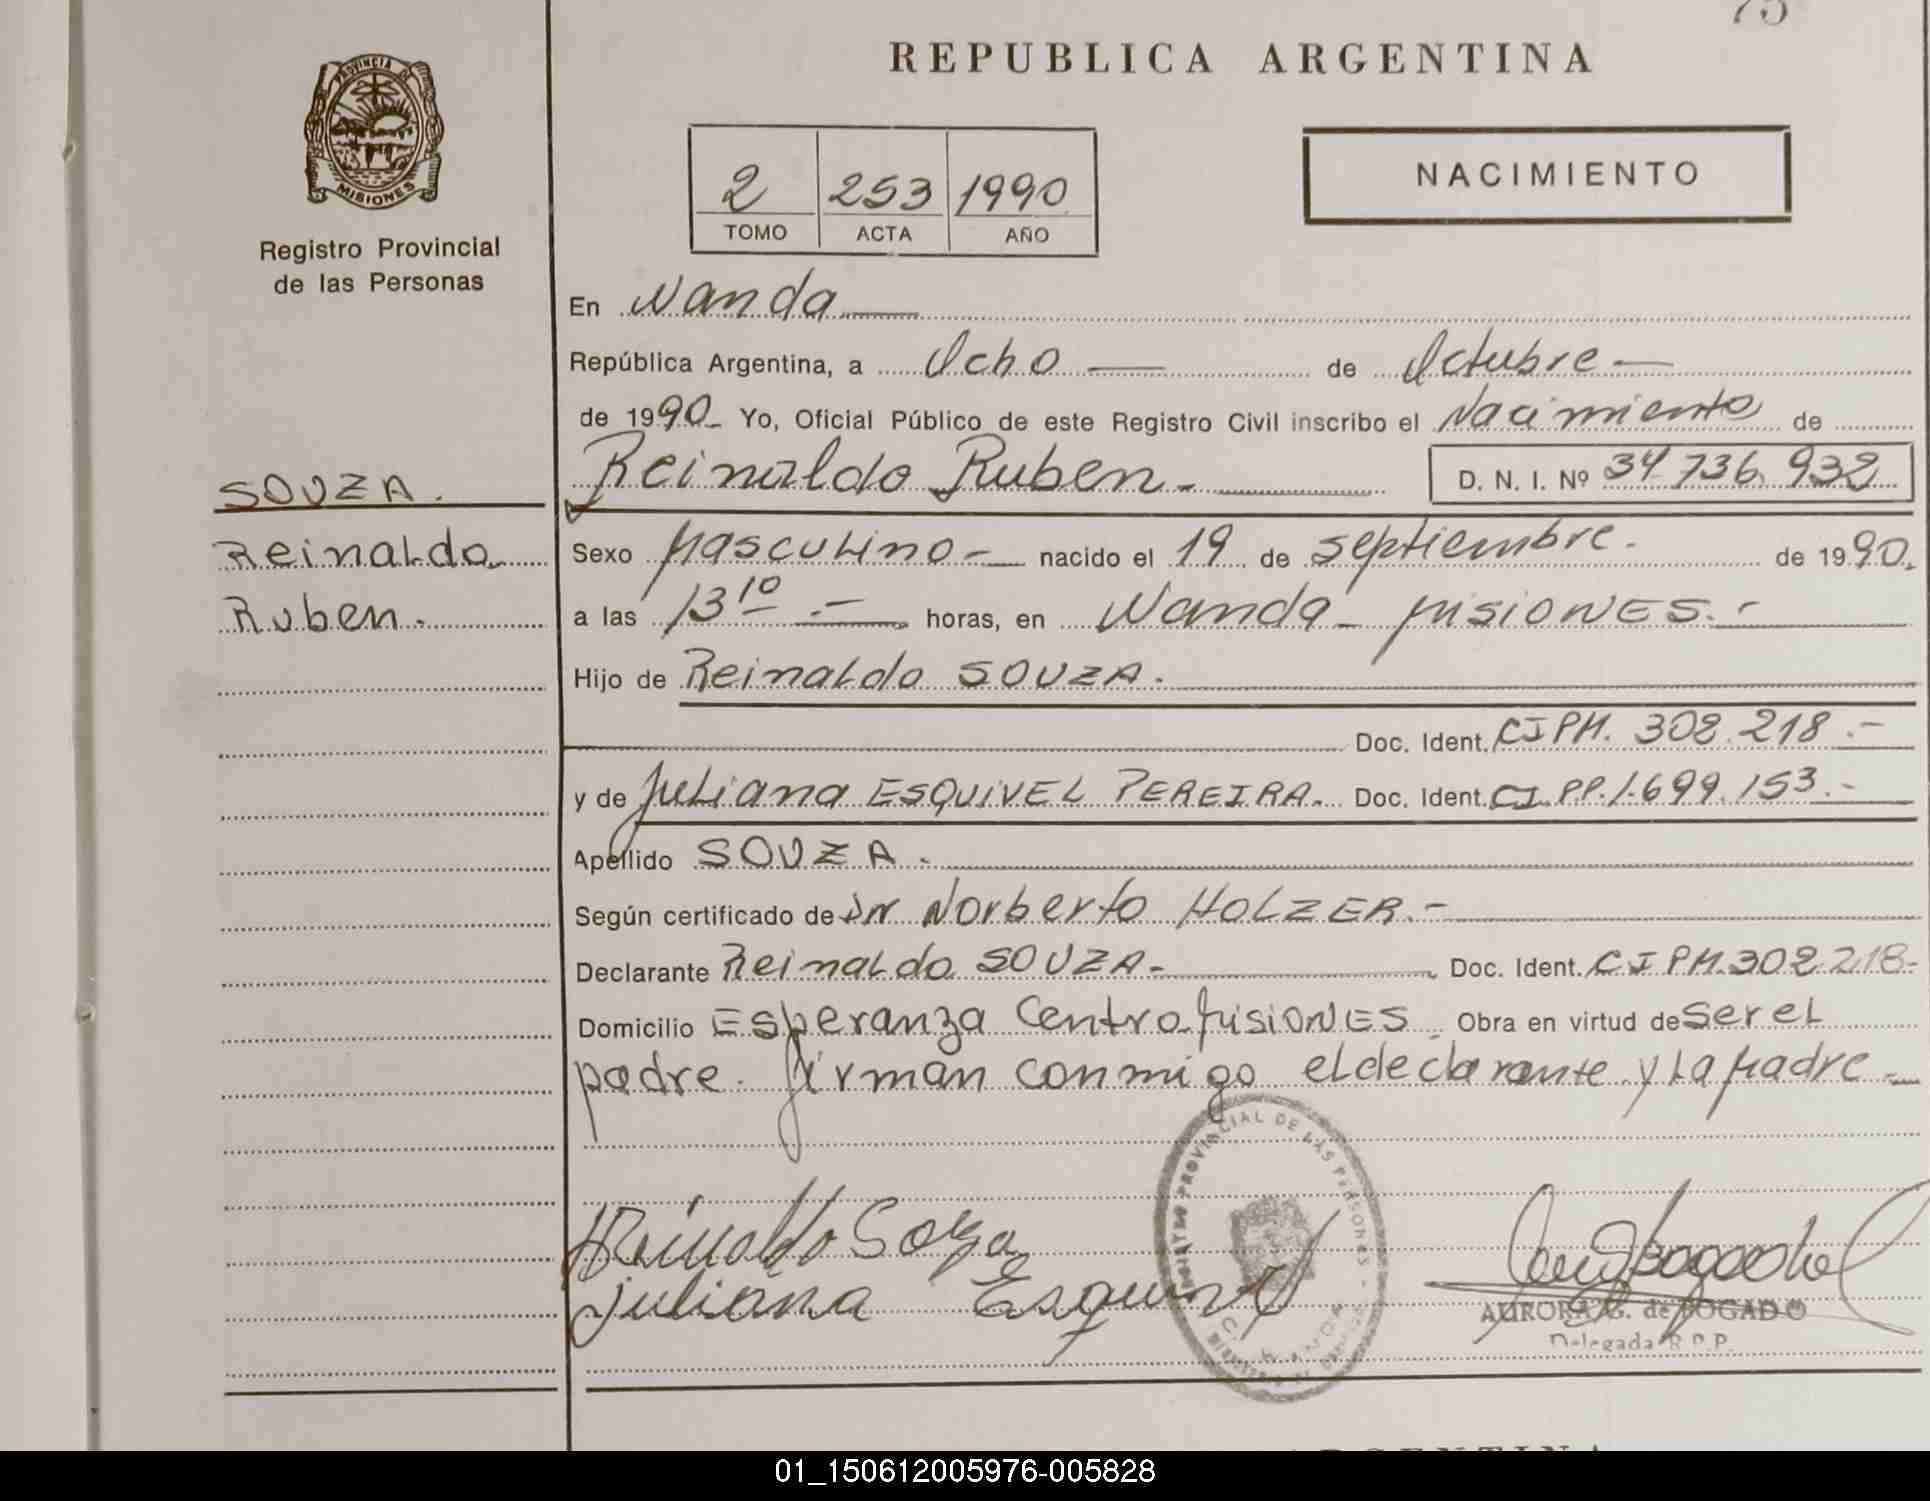 75
REPUBLICA ARGENTINA
PROVINCIA DE
MISIONES
Registro Provincial
de las Personas
2 253 1990
TOMO ACTA AÑO
NACIMIENTO
En Wanda
República Argentina, a Ocho de Octubre
de 1990 Yo, Oficial Público de este Registro Civil inscribo el Nacimiento de
Reinaldo Ruben.- D. N. I. Nº 34 736. 932
SOUZA.
Reinaldo
Ruben.
Sexo Masculino- nacido el 19 de septiembre. de 1990.
a las 13 10 .- horas, en Wanda- MISIONES.-
Hijo de Reinaldo SOUZA.
Doc. Ident. CIPM. 302.218.-
y de Juliana ESQUIVEL PEREIRA. Doc. Ident. CI.PP.1.699.153.-
Apellido SOUZA.
Según certificado de Dr Norberto HOLZER.-
Declarante Reinaldo SOUZA- Doc. Ident. CIPM.302.218-
Domicilio Esperanza Centro.MISIONES Obra en virtud de Ser el
padre. Firman conmigo el declarante y La Madre-
REGISTRO PROVINCIAL DE LAS PERSONAS
Reinaldo Soza
Juliana Esquivel
AURORA G. de BOGADO
Delegada R.P.P.
ARGENTINA
01_150612005976-005828